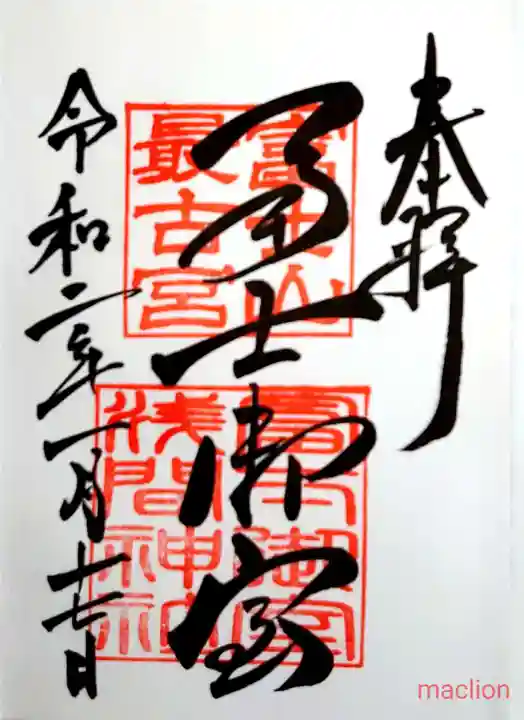 奉拝
冨士御室
富士山
最古宮
冨士御室
浅間神社
令和二年一月十七日
maclion